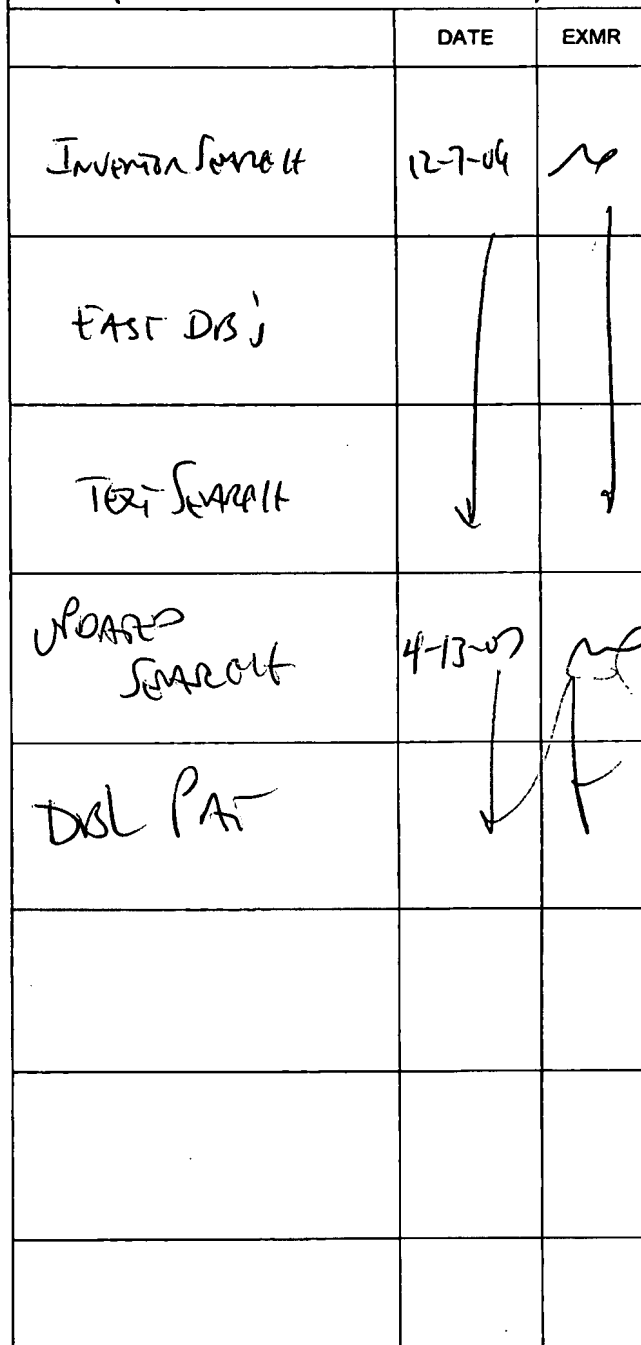 DATE EXMR
INVENTOR SEARCH 12-7-06
EAST DB's
TEXT SEARCH
UPDATED
SEARCH 4-13-07
DBL PAT